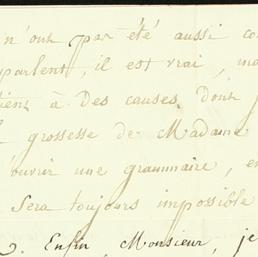 n'ont pas été aussi co
parlent, il est vrai, ma
tient à des causes dont j
grossesse de Madame
ouvrir une grammaire, en
Sera toujours impossible
Enfin, Monsieur, je